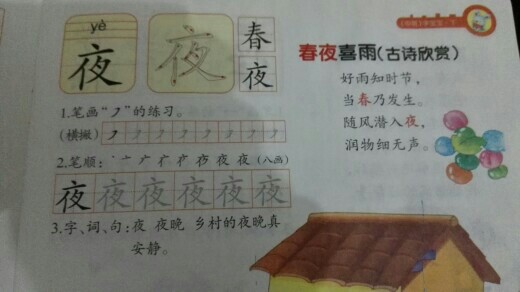 yè
夜
夜
春
夜
1.笔画“㇇”的练习。
(横撇)
2.笔顺: 夜 (八画)
夜 夜 夜 夜 夜 夜
3.字、词、句:夜 夜晚 乡村的夜晚真
安静。
春夜喜雨(古诗欣赏)
好雨知时节,
当春乃发生。
随风潜入夜,
润物细无声。